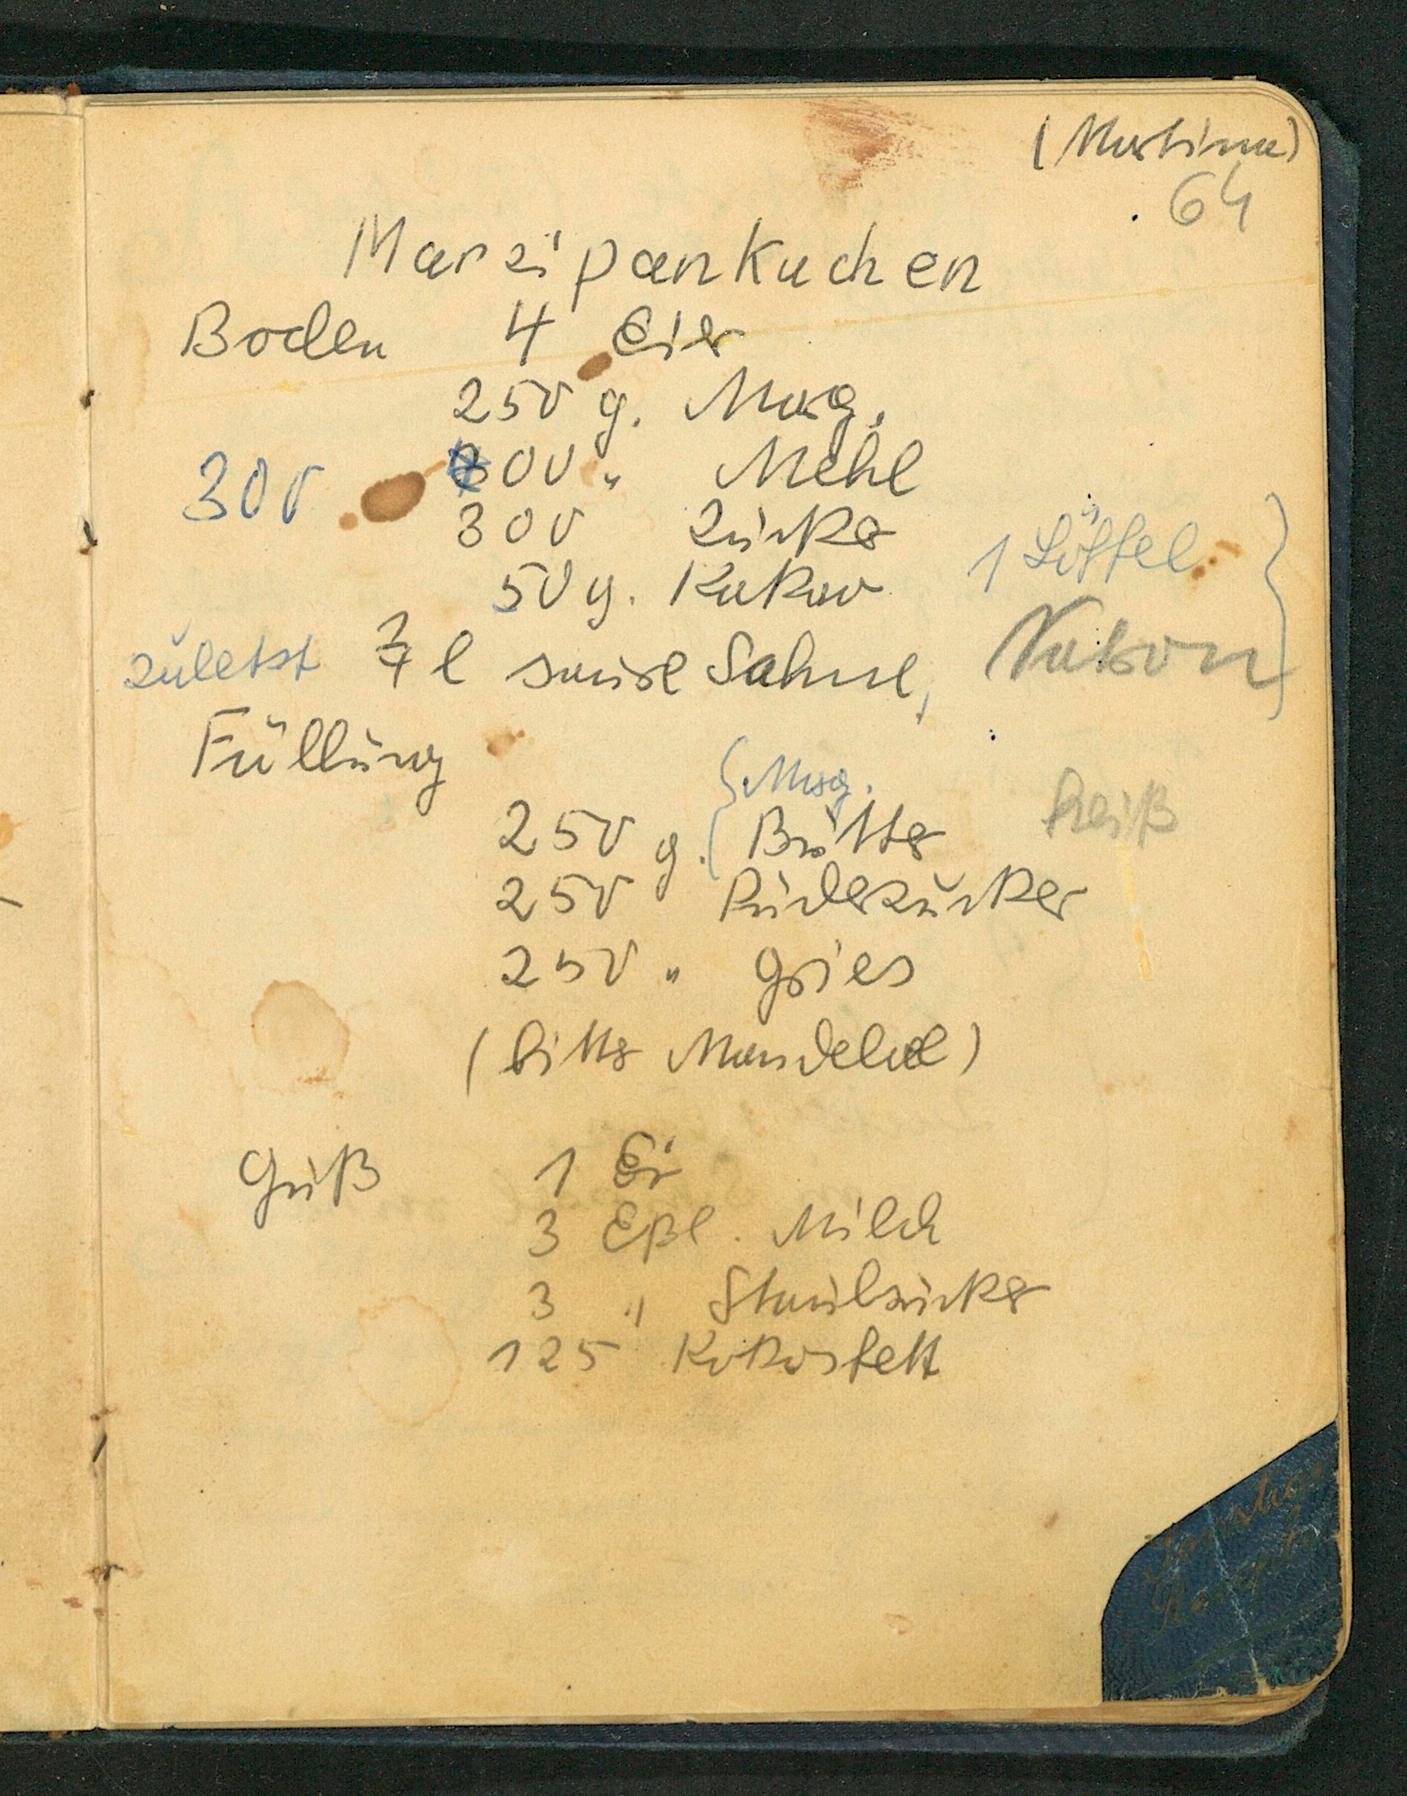 (Martina)
64
Marzipankuchen
Boden 4 Eier
250 g. Marg.
300 " Mehl
300
300 Zucker
50 g. Kakao
1 Löffel
Natron
zuletzt l saure Sahne,
Füllung
Marg.
250 g. Butter heiß
250 Puderzucker
250 " Gries
(bitter Mandelöl)
Guß 1 Ei
3 Eßl. Milch
3 " Staubzucker
125 Kokosfett